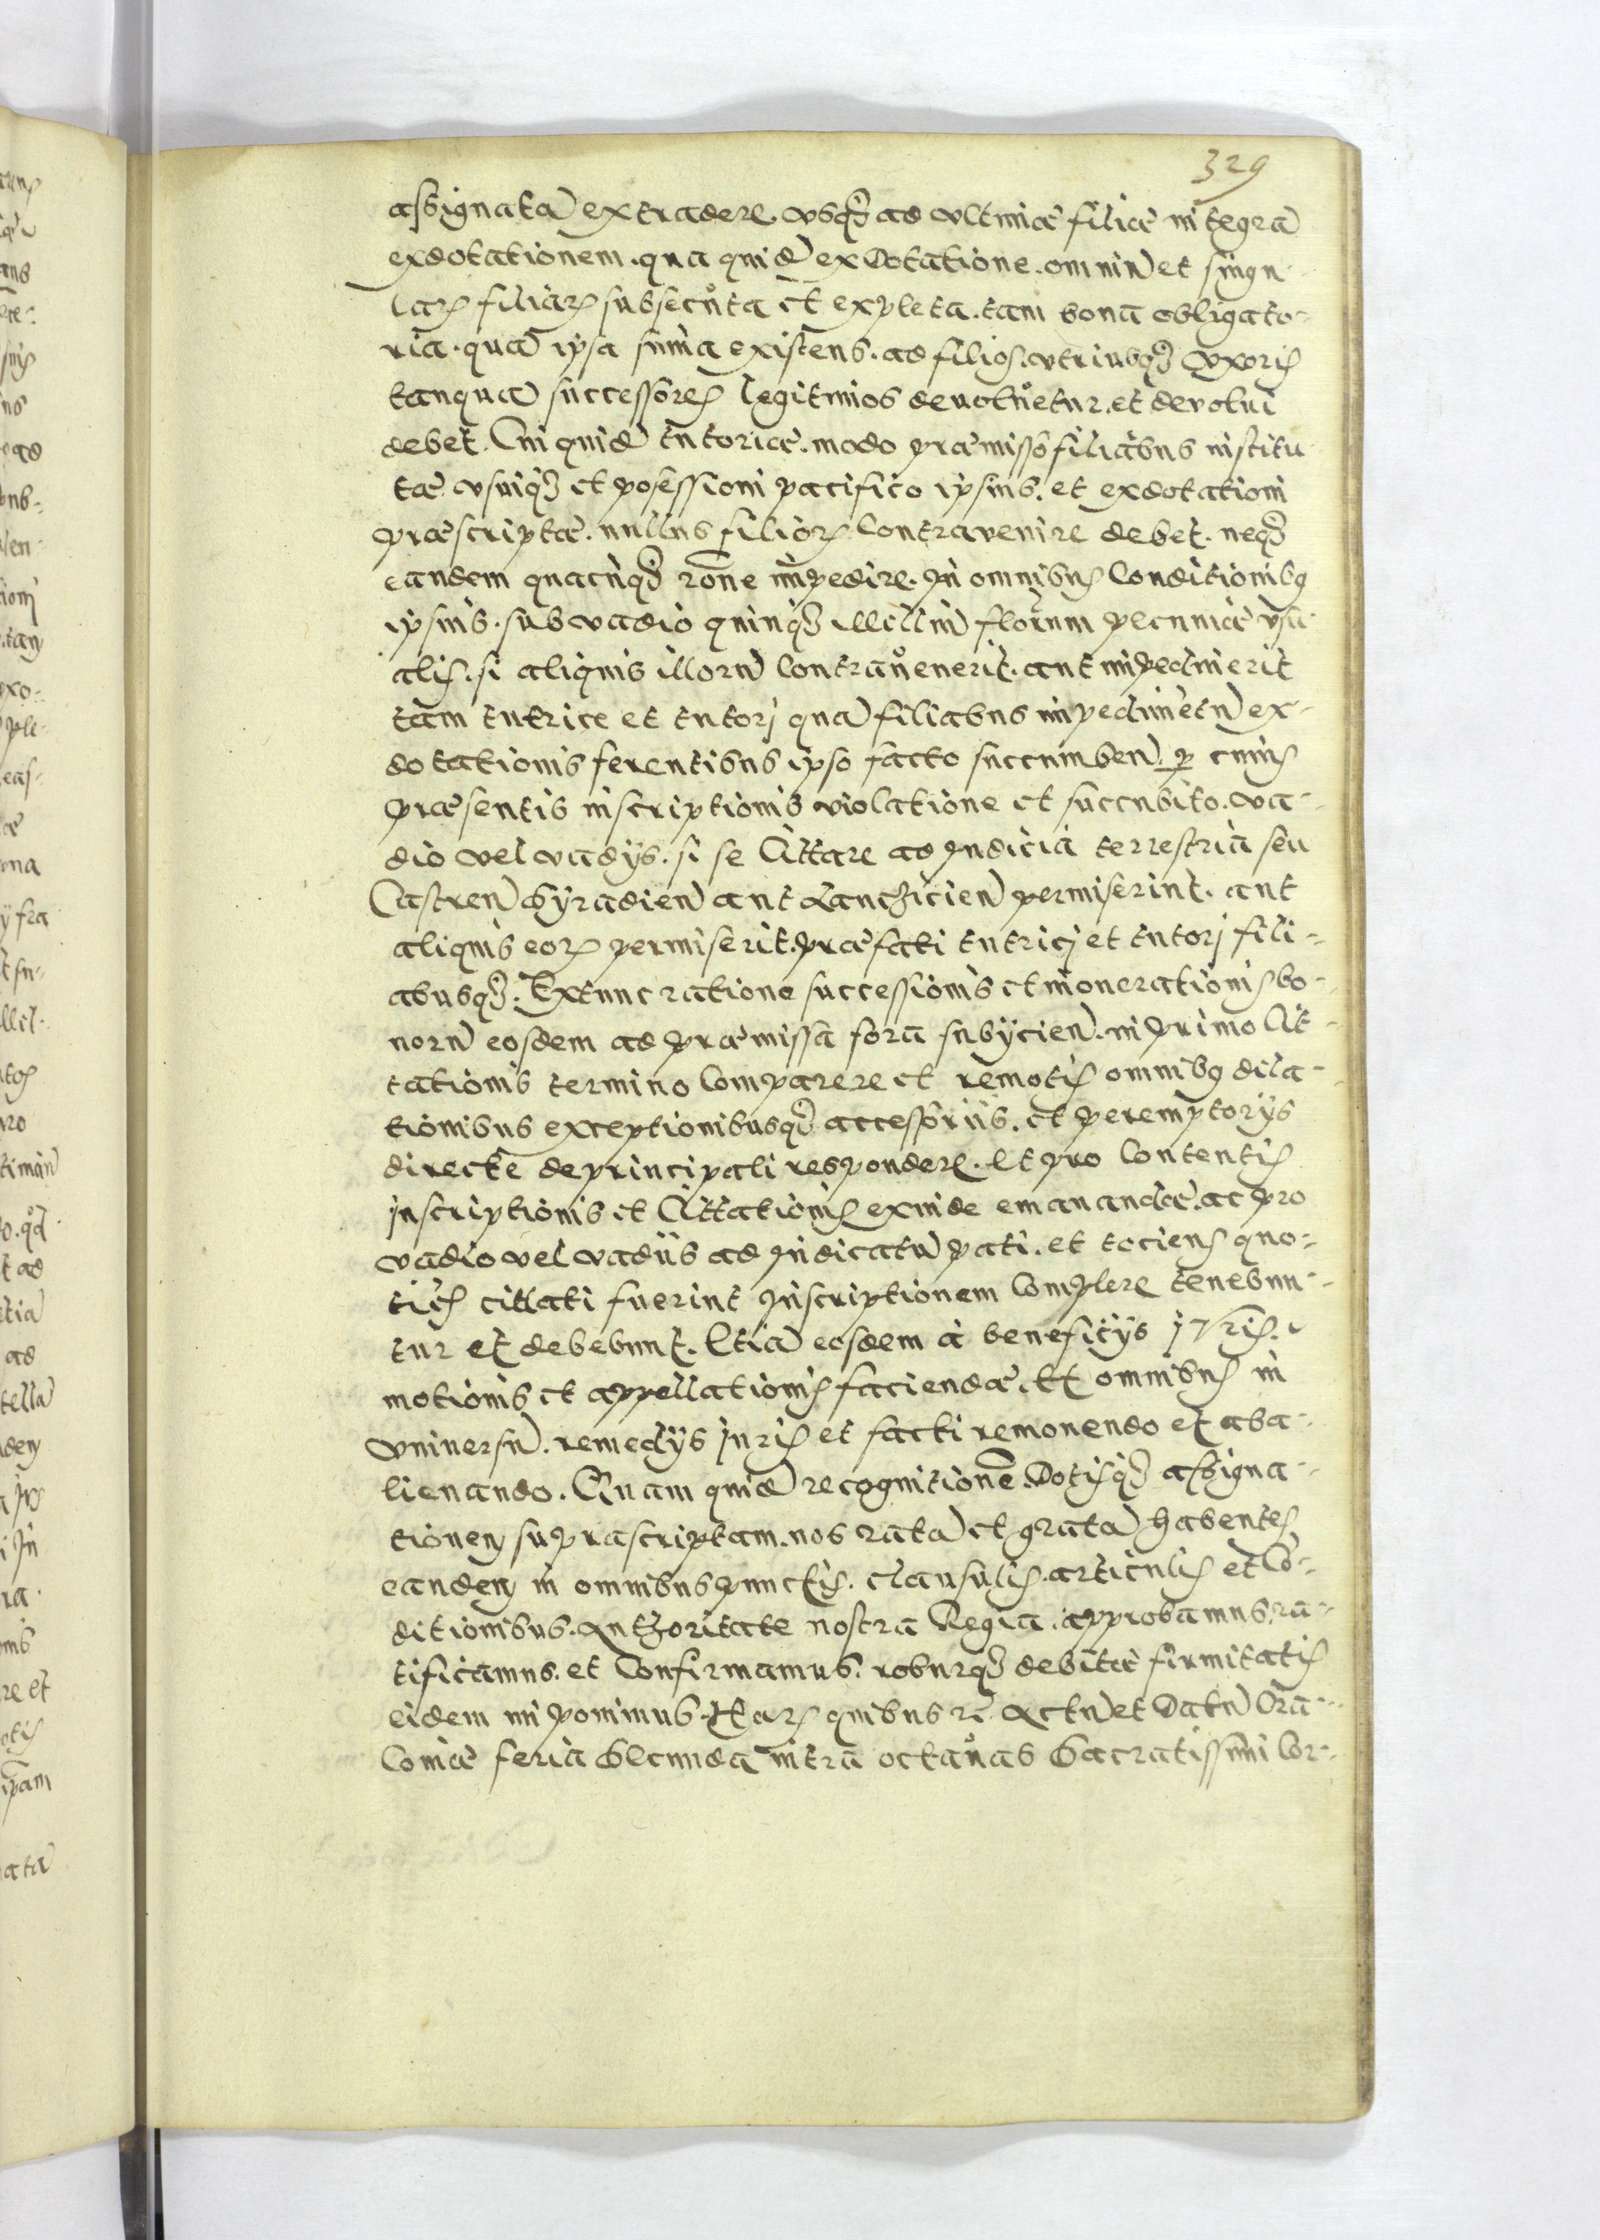 329
assignatã extradere. vsq3 ad vltimæ filiæ integrã
exdotationem. qua quid̃ exDotatione. omniũ et singu-
larꝫ filiarꝫ subsecuta et expleta. tam bona obligato-
ria. quã ipsa suma existens. ad filios. vtriusq3 vxoris
tanquã successores legitimos deuoluetur. et devolui
debet. Cui quid̃ tutoriæ. modo præmisso filiabus institu
tæ. vsuiq3 et posessioni pacifico ipsius. et exdotationi
præscriptæ. nullus filiorꝫ Contravenire debet. neq3
eandem quacũq3 rõne impedire. In omnibus Conditionibꝰ
ipsius. sub vadio quinq3 Millium florenum pecuniæ vsu
alis. si aliquis illorũ Contravenerit. aut impediuerit
tam tutrice et tutori quã filiabus impedimẽtũ ex-
dotationis ferentibus ipso facto succumbeñ. ꝑ cuius
præsentis inscriptionis violatione et succubito. va-
dio vel vadÿs. si se Cittare ad Judicia terrestria seu
Castreñ Syradieñ aut Lanciцieñ permiserint. aut
aliquis eorꝫ permiserit. præfati tutricj et tutorj fili-
abusq3. Extunc ratione successionis et inonerationis bo-
norũ eosdem ad præmissa fora subÿcieñ. in primo Cit-
tationis termino Comparere et remotis omnibꝰ dila-
tionibus exceptionibusq3 accessoriis. et peremptorÿs
directe de principali respondere. Et pro Contentis
inscriptionis et Cittationis exinde emanandæ. ac pro
vadio vel vadiis ad Iudicatũ pati. et tociens quo-
ties cittati fuerint Inscriptionem Complere tenebun-
tur et debebunt. Etiã eosdem à beneficÿs juris.
motionis et appellationis faciendæ. Et omnibus in
vniuersũ. remedÿs Juris et facti remouendo et aba-
lienando. Quam quid̃ recognitionẽ Dotisq3 assigna-
tionem suprascriptam. nos ratã et gratã habentes
eandem in omnibus punctis. clausulis. articulis et Cõ-
ditionibus. authoritate nostra Regia. approbamus. ra-
tificamus. et Confirmamus. roburq3 debitæ firmitatis
eidem imponimus. Harꝫ quibus &c̃ Actũ et Datũ Cra-
coniæ feria Secunda intra octauas Sacratissimi Cor-